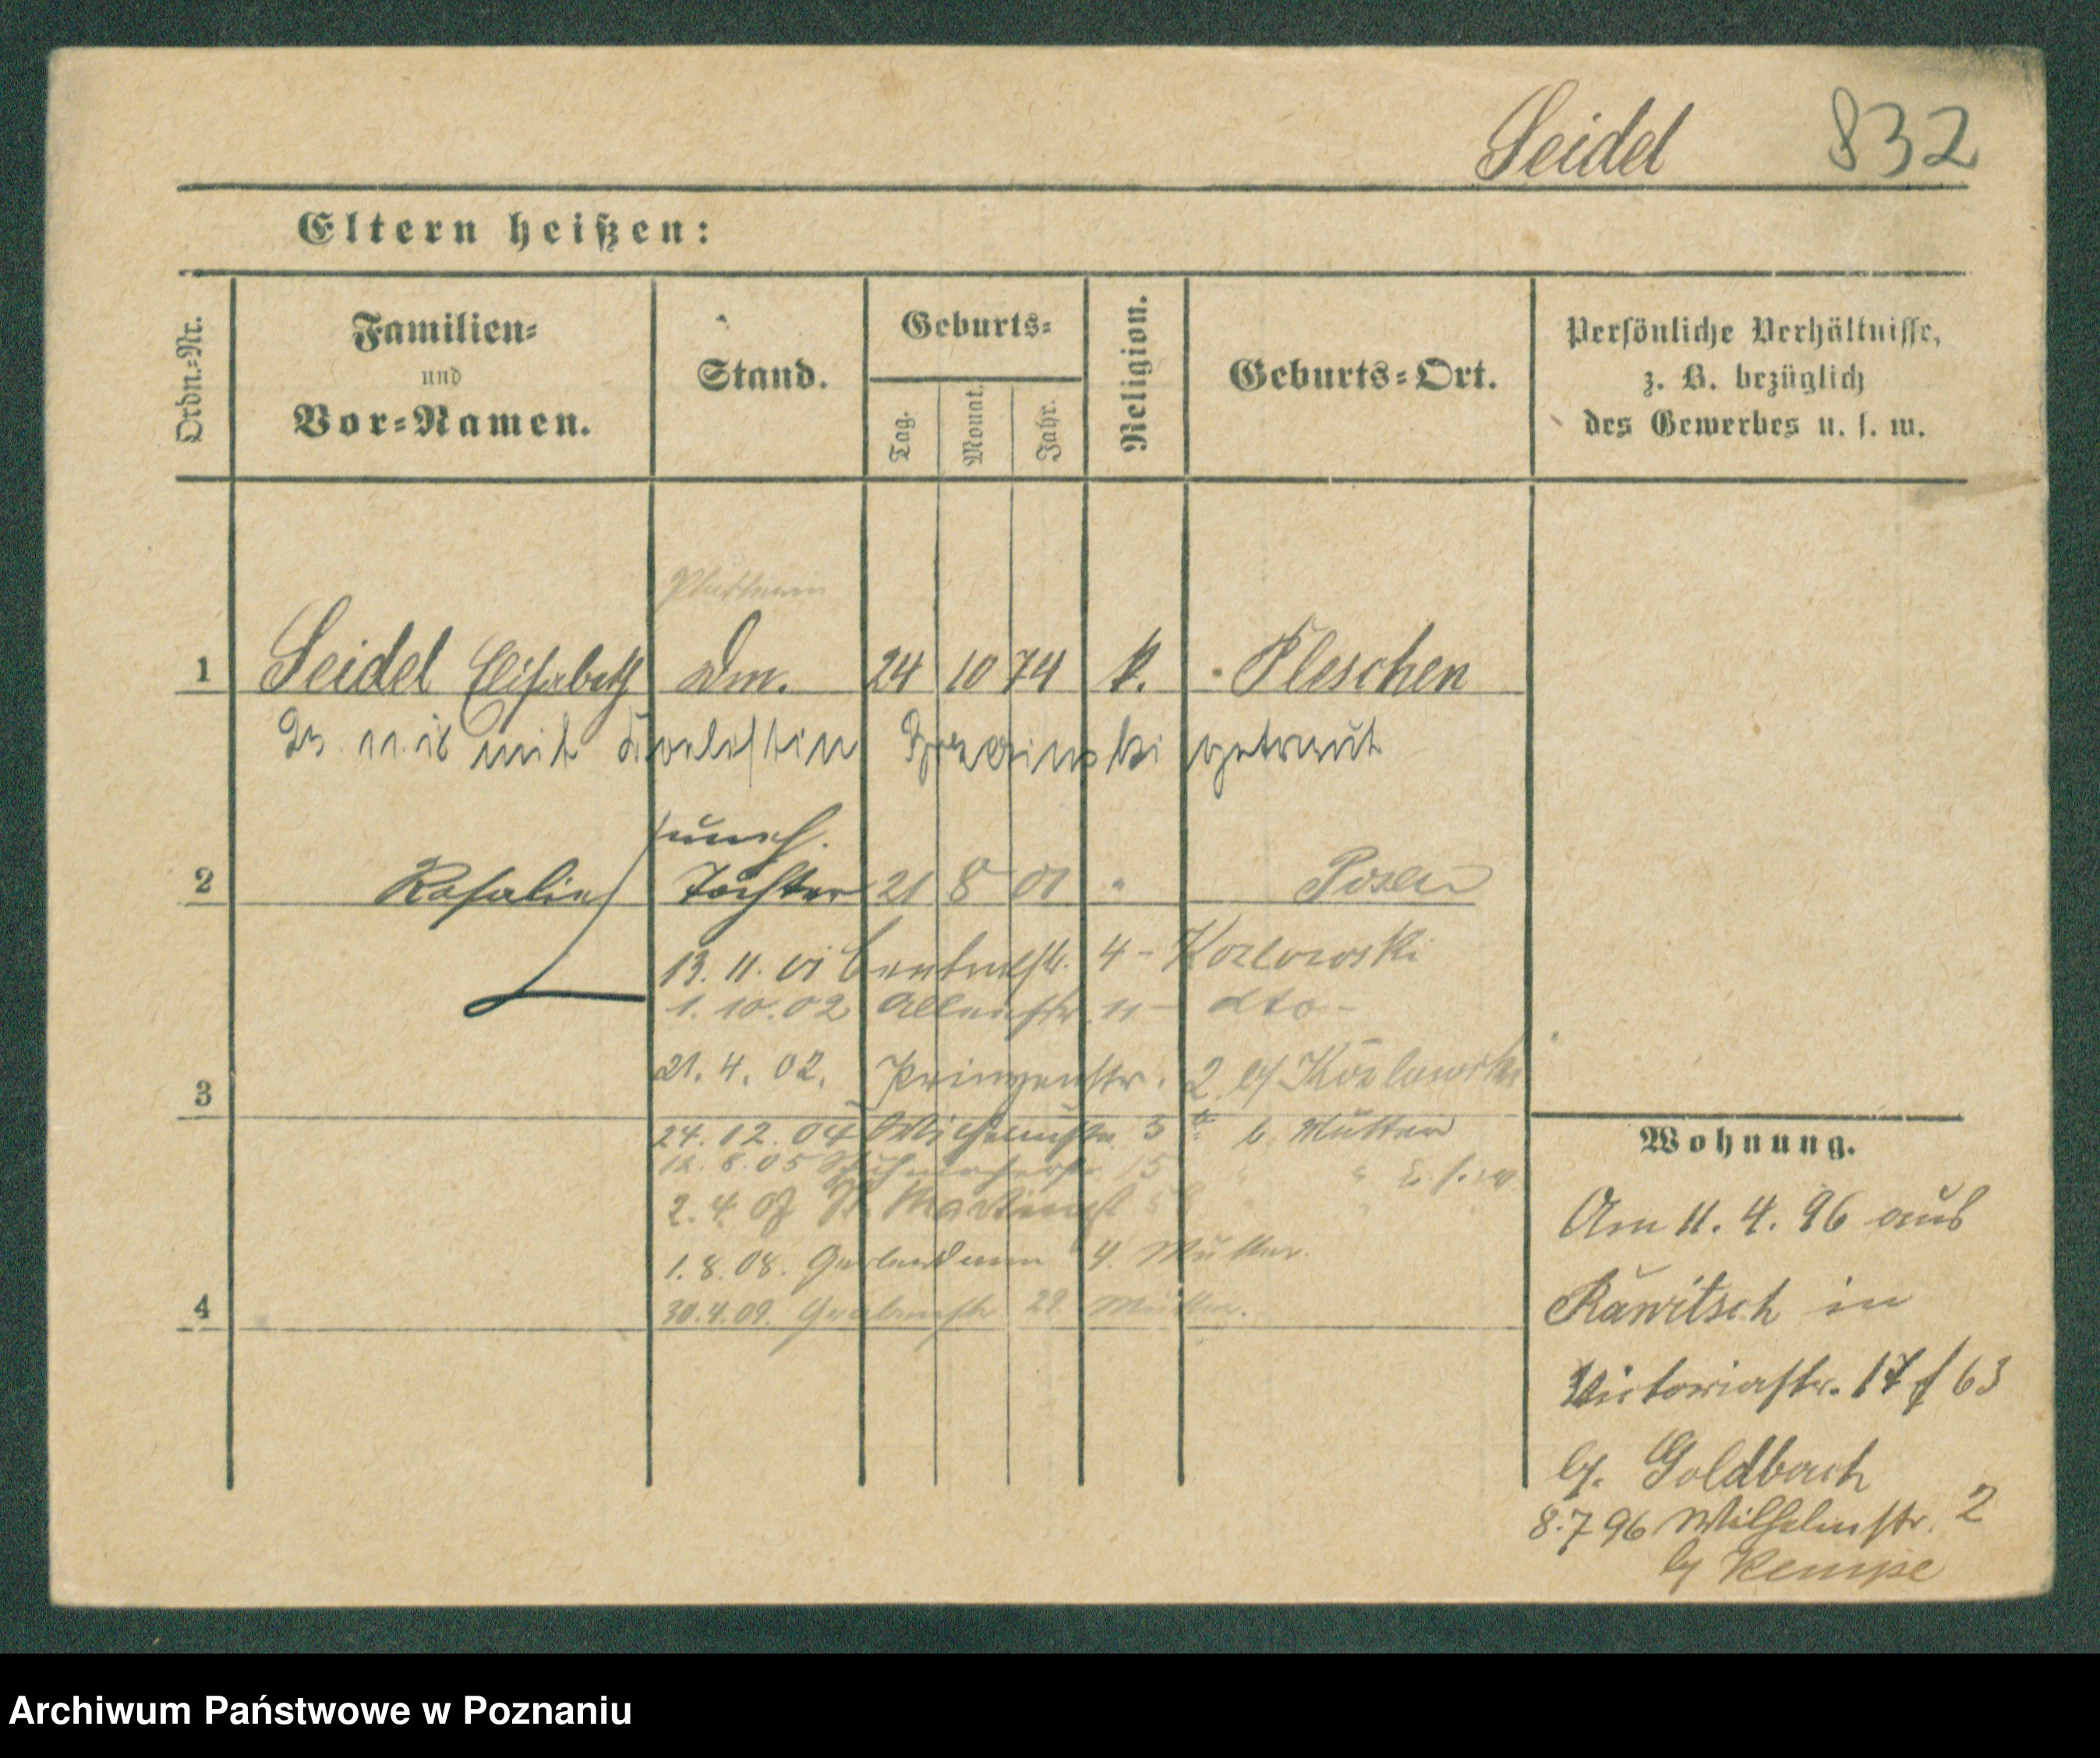 Seidel 832
Eltern heißen:
Ordn.-Nr.
Familien-
und
Vor-Namen.
Stand.
Geburts-
Tag.
Monat.
Jahr.
Religion.
Geburts-Ort.
Persönliche Verhältnisse,
z. B. bezüglich
des Gewerbes u. s. w.
1 Seidel Elisabeth Dm. 24 10 74 k. Pleschen
mit getraut
uneh.
2 Rosalie Tochter 21 8 01 " Posen
13. 11. 01 4 - Kozlowski
1. 10. 02 11 - dto -
3
21. 4. 02. Prinzenstr. 2 b/ Kozlowski
24. 12. 04 b. Mutter
12. 8. 05 15 " "
2. 4. 07 St. Martinstr
1. 8. 08. Gerberdamm 4. Mutter.
4
30. 4. 09. Grabenstr 29. Mutter.
Wohnung.
Am 11. 4. 96 aus
Rawitsch in
Victoriastr. 17 f 63
b/. Goldbach
8. 7 96 Wilhelmstr. 2
b/ Kempe
Archiwum Państwowe w Poznaniu